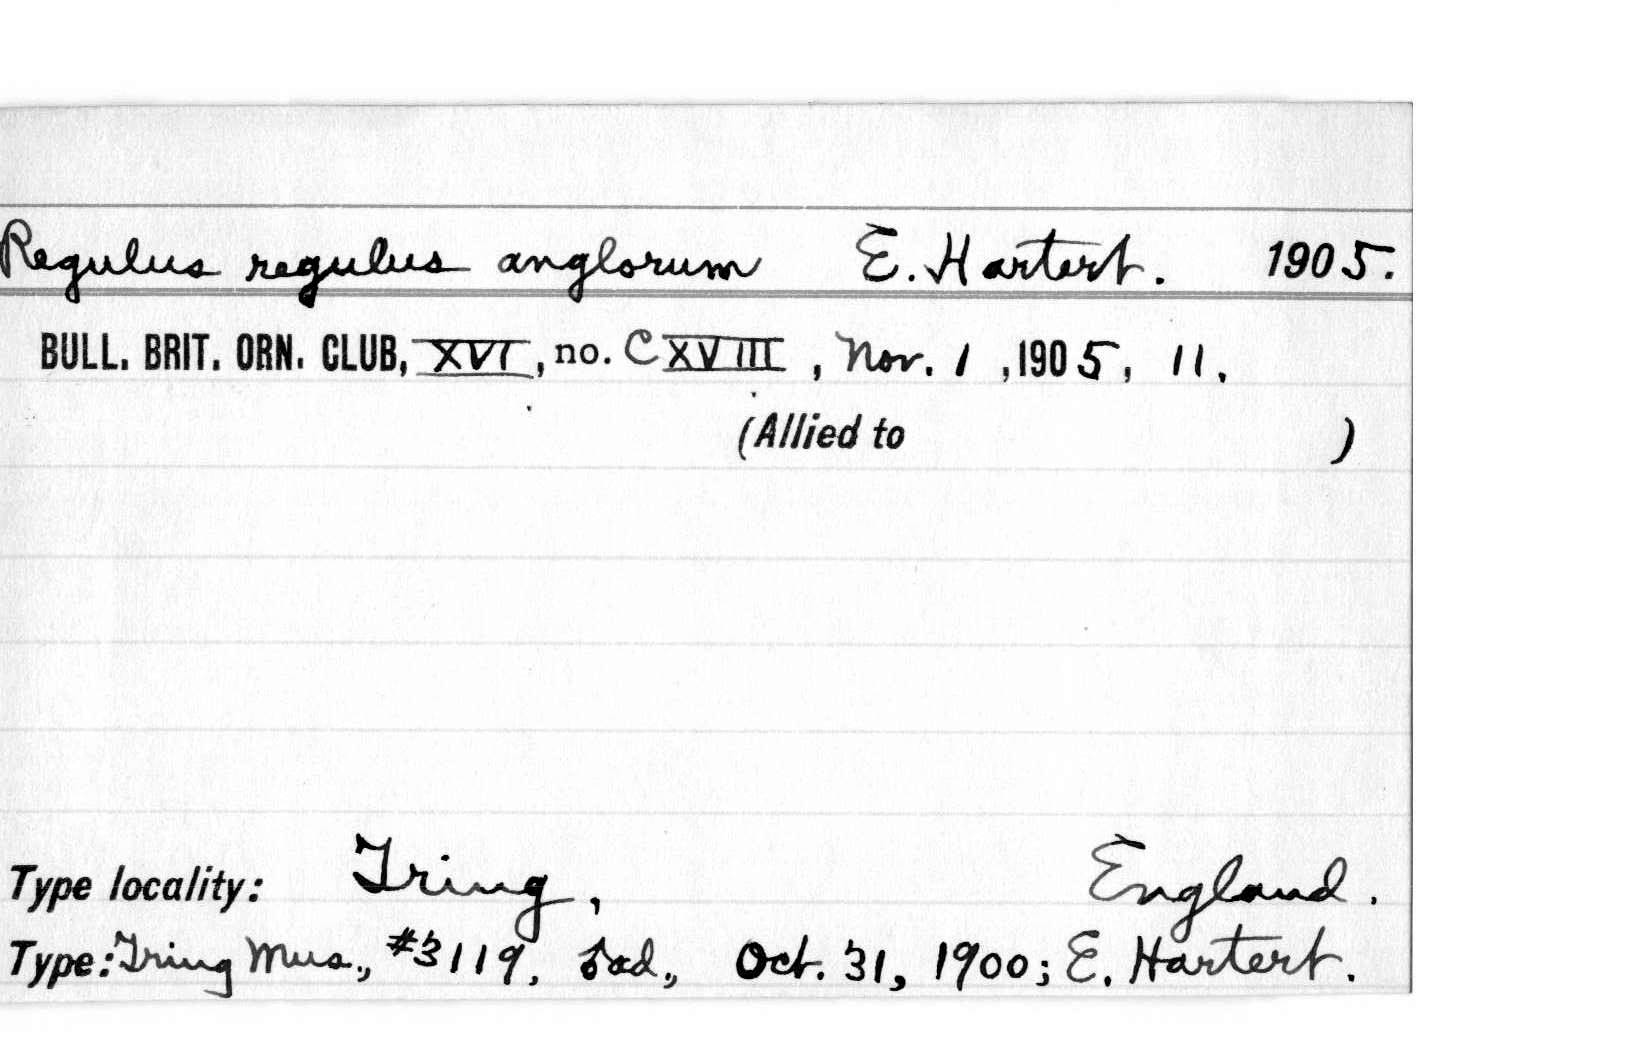 Regulus regulus anglorum E. Hartert. 1905.
BULL. BRIT. ORN. CLUB, XVI, no. CXVIII, Nov. 1, 1905, 11.
(Allied to )
Type locality: Tring, England.
Type: Tring Mus., #3119, ad., Oct. 31, 1900; E. Hartert.